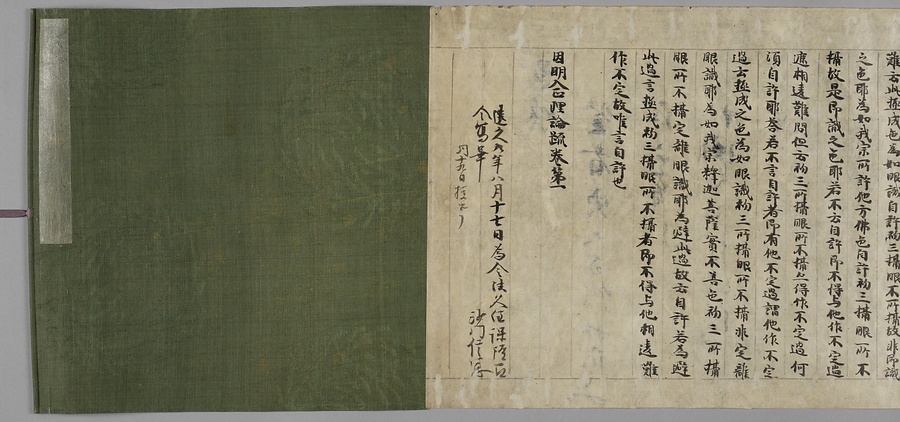 難言此極成色為如眼識自許初三攝眼不所攝故非即識
之色耶為如我宗所許他方佛色自許初三攝眼所不
攝故是即識之色耶若不言自許即不得与他作不定過
遮相違難問但言初三所攝眼所不攝亦得作不定過何
須自許耶答若不言自許者即有他不定過謂他作不定
過去極成之色為如眼識初三所攝眼所不攝非定離
眼識耶為如我宗釋迦菩薩實不善色初三所攝
眼所不攝定離眼識耶為避此過故言自許若為避
此過言極成初三攝眼所不攝者即不得与他相違難
作不定故唯言自許也
因明入正理論疏卷第一
久九年八月十七日為令法久住
令寫畢
沙門